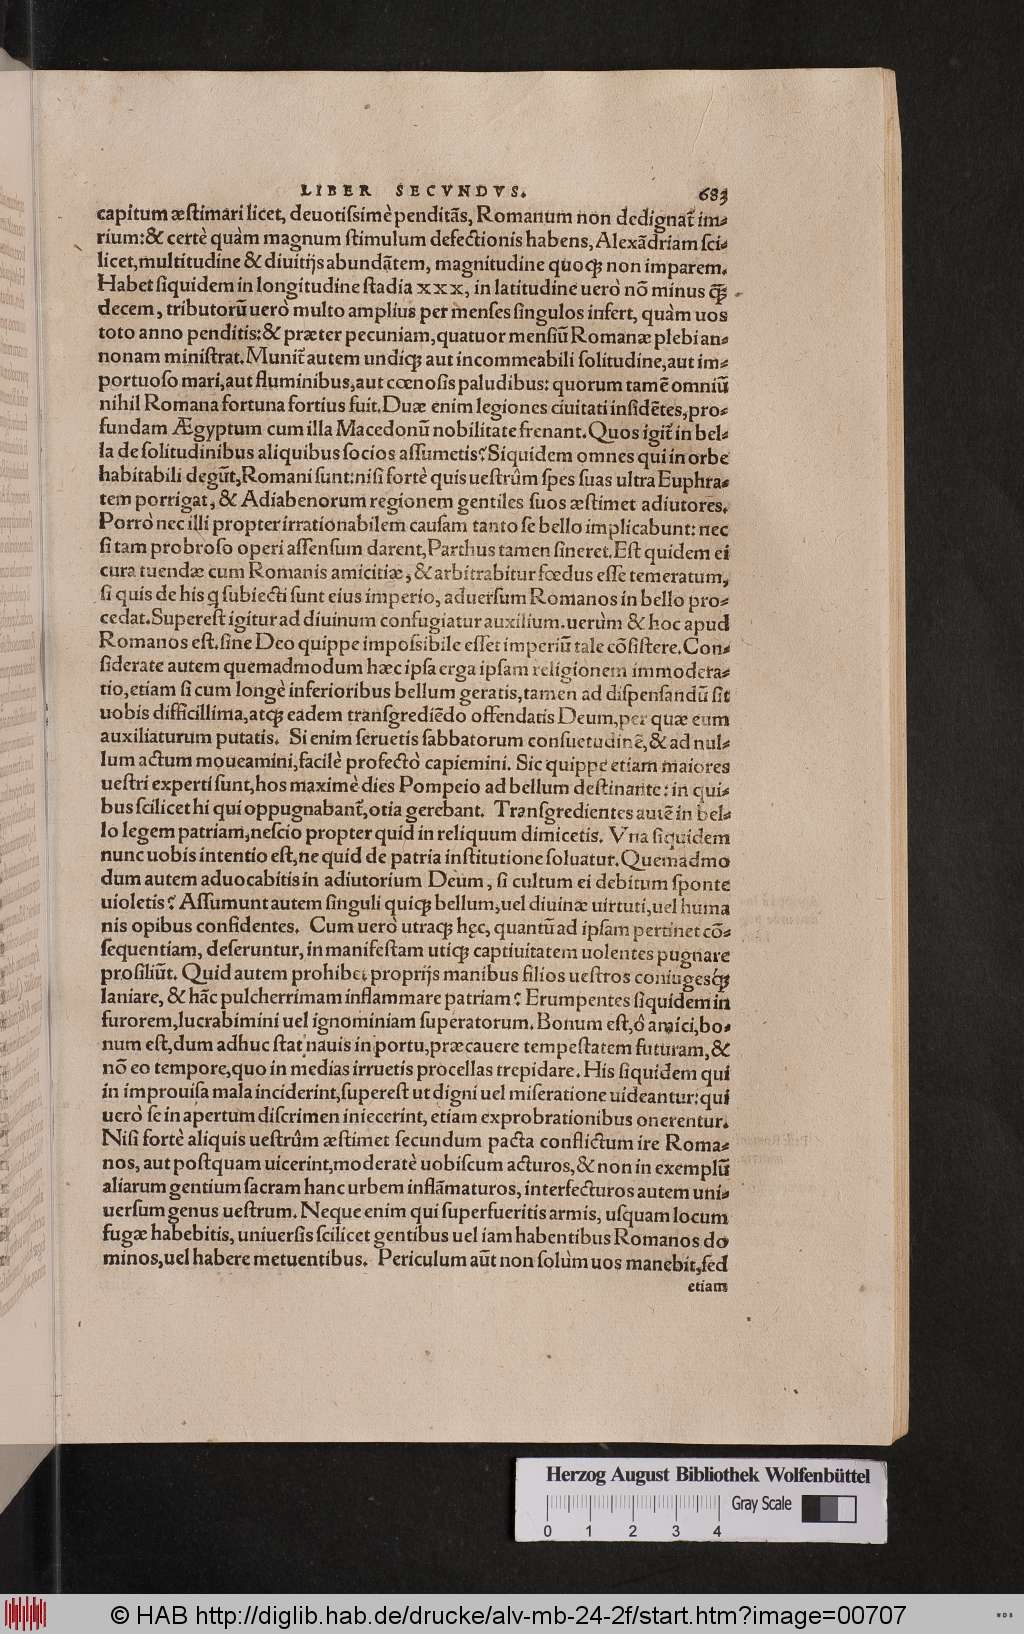 LIBER SECVNDVS. 683
capitum æstimari licet, deuotissimè penditãs, Romanum non dedignat̃ im-
rium: & certè quàm magnum stimulum defectionis habens, Alexãdriam sci-
licet, multitudine & diuitijs abundãtem, magnitudine quoq́; non imparem.
Habet siquidem in longitudine stadia xxx, in latitudine uerò nõ minus q̃ꝫ
decem, tributorũ uerò multo amplius per menses singulos infert, quàm uos
toto anno penditis: & præter pecuniam, quatuor mensiũ Romanæ plebi an-
nonam ministrat. Munit̃ autem undiq; aut incommeabili solitudine, aut im-
portuoso mari, aut fluminibus, aut cœnosis paludibus: quorum tamẽ omniũ
nihil Romana fortuna fortius fuit. Duæ enim legiones ciuitati insidẽtes, pro-
fundam Ægyptum cum illa Macedonũ nobilitate frenant. Quos igit̃ in bel-
la de solitudinibus aliquibus socios assumetis? Siquidem omnes qui in orbe
habitabili degũt, Romani sunt: nisi fortè quis uestrûm spes suas ultra Euphra-
tem porrigat, & Adiabenorum regionem gentiles suos æstimet adiutores.
Porrò nec illi propter irrationabilem causam tanto se bello implicabunt: nec
si tam probroso operi assensum darent, Parthus tamen sineret. Est quidem ei
cura tuendæ cum Romanis amicitiæ, & arbitrabitur fœdus esse temeratum,
si quis de his q̃ subiecti sunt eius imperio, aduersum Romanos in bello pro-
cedat. Superest igitur ad diuinum confugiatur auxilium. uerum & hoc apud
Romanos est. sine Deo quippe impossibile esset imperiũ tale cõsistere. Con-
siderate autem quemadmodum hæc ipsa erga ipsam religionem immodera-
tio, etiam si cum longè inferioribus bellum geratis, tamen ad dispensandũ sit
uobis difficillima, atq; eadem transgrediẽdo offendatis Deum, per quæ eum
auxiliaturum putatis. Si enim seruetis sabbatorum consuetudinẽ, & ad nul-
lum actum moueamini, facilè profectò capiemini. Sic quippe etiam maiores
uestri experti sunt, hos maximè dies Pompeio ad bellum destinante: in qui-
bus scilicet hi qui oppugnabant̃, otia gerebant. Transgredientes autẽ in bel-
lo legem patriam, nescio propter quid in reliquum dimicetis. Vna siquidem
nunc uobis intentio est, ne quid de patria institutione soluatur. Quemadmo
dum autem aduocabitis in adiutorium Deum, si cultum ei debitum sponte
uioletis? Assumunt autem singuli quiq; bellum, uel diuinæ uirtuti, uel huma
nis opibus confidentes. Cum uerò utraq; hęc, quantũ ad ipsam pertinet cõ-
sequentiam, deseruntur, in manifestam utiq; captiuitatem uolentes pugnare
prosiliũt. Quid autem prohibet proprijs manibus filios uestros coniugesq́;
laniare, & hãc pulcherrimam inflammare patriam? Erumpentes siquidem in
furorem, lucrabimini uel ignominiam superatorum. Bonum est, ô amici, bo-
num est, dum adhuc stat nauis in portu, præcauere tempestatem futuram, &
nõ eo tempore, quo in medias irruetis procellas trepidare. His siquidem qui
in improuisa mala inciderint, superest ut digni uel miseratione uideantur: qui
uerò se in apertum discrimen iniecerint, etiam exprobrationibus onerentur.
Nisi fortè aliquis uestrûm æstimet secundum pacta conflictum ire Roma-
nos, aut postquam uicerint, moderatè uobiscum acturos, & non in exemplũ
aliarum gentium sacram hanc urbem inflãmaturos, interfecturos autem uni-
uersum genus uestrum. Neque enim qui superfueritis armis, usquam locum
fugæ habebitis, uniuersis scilicet gentibus uel iam habentibus Romanos do
minos, uel habere metuentibus. Periculum aũt non solùm uos manebit, sed
etiam
Herzog August Bibliothek Wolfenbüttel
Gray Scale
0 1 2 3 4
© HAB http://diglib.hab.de/drucke/alv-mb-24-2f/start.htm?image=00707